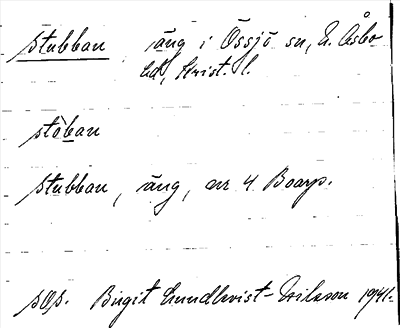 stubban äng i Össjö sn, N. Åsbo
hd, Krist. l.
stòban
stubban, äng, nr 4 Boarp.
pgp. Birgit Lundkvist-Erilsson 1941.